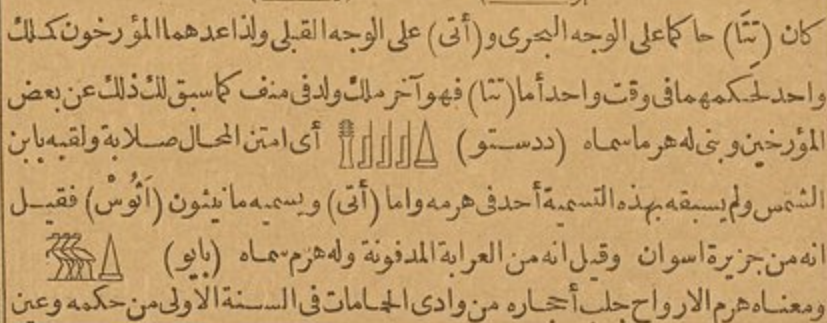 كان (تتَا) حاكما على الوجه البحرى و (أتى) على الوجه القبلى ولذا عدهما المؤرخون كملك
واحد لحكمهما فى وقت واحد أما (تتا) فهو آخر ملك ولد فى منف كما سبق لك ذلك عن بعض
المؤرخين و بنى له هرما سماه (ددستو) 𓊽𓋴𓋴𓋴𓋴𓉴 أى امتن المحال صلابة ولقبه يابن
الشمس ولم يسبقه بهذه التسمية أحد فى هرمه واما (أتى) ويسميه مانيثون (آتُوسْ) فقيل
انه من جزيرة اسوان وقيل انه من العرابة المدفونة وله هرم سماه (بايو) 𓅢𓉴
ومعناه هرم الارواح جلب أحجاره من وادى الحمامات فى السنة الاولى من حكمه وعين